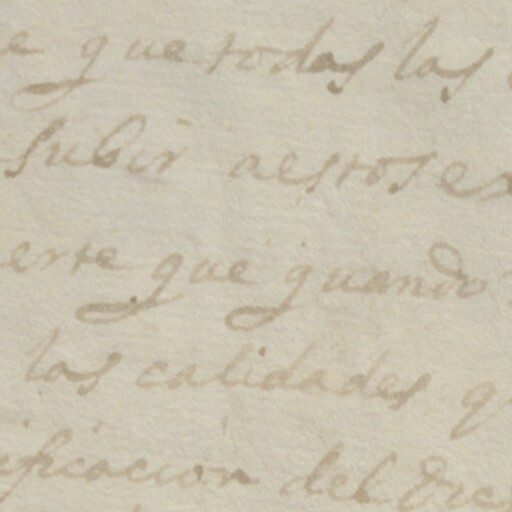 e que todas las
subir aestos ex
erte que quando
las calidades q
ificacion del